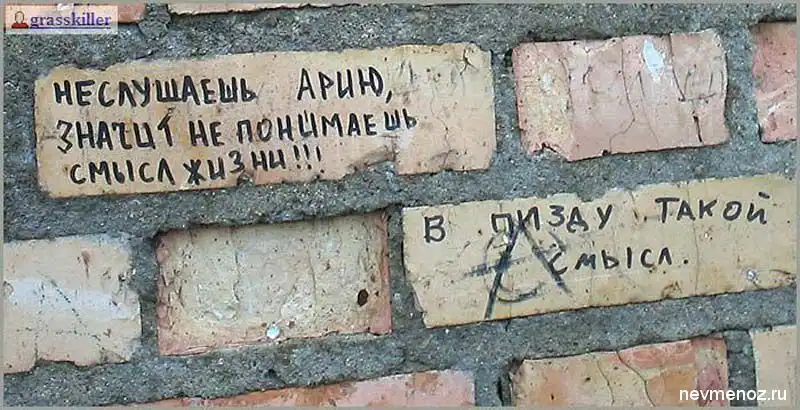 grasskiller
НЕСЛУШАЕШЬ АРИЮ,
ЗНАЧИТ НЕ ПОНИМАЕШЬ
СМЫСЛ ЖИЗНИ!!!
В ПИЗДУ ТАКОЙ
СМЫСЛ.
nevmenoz.ru